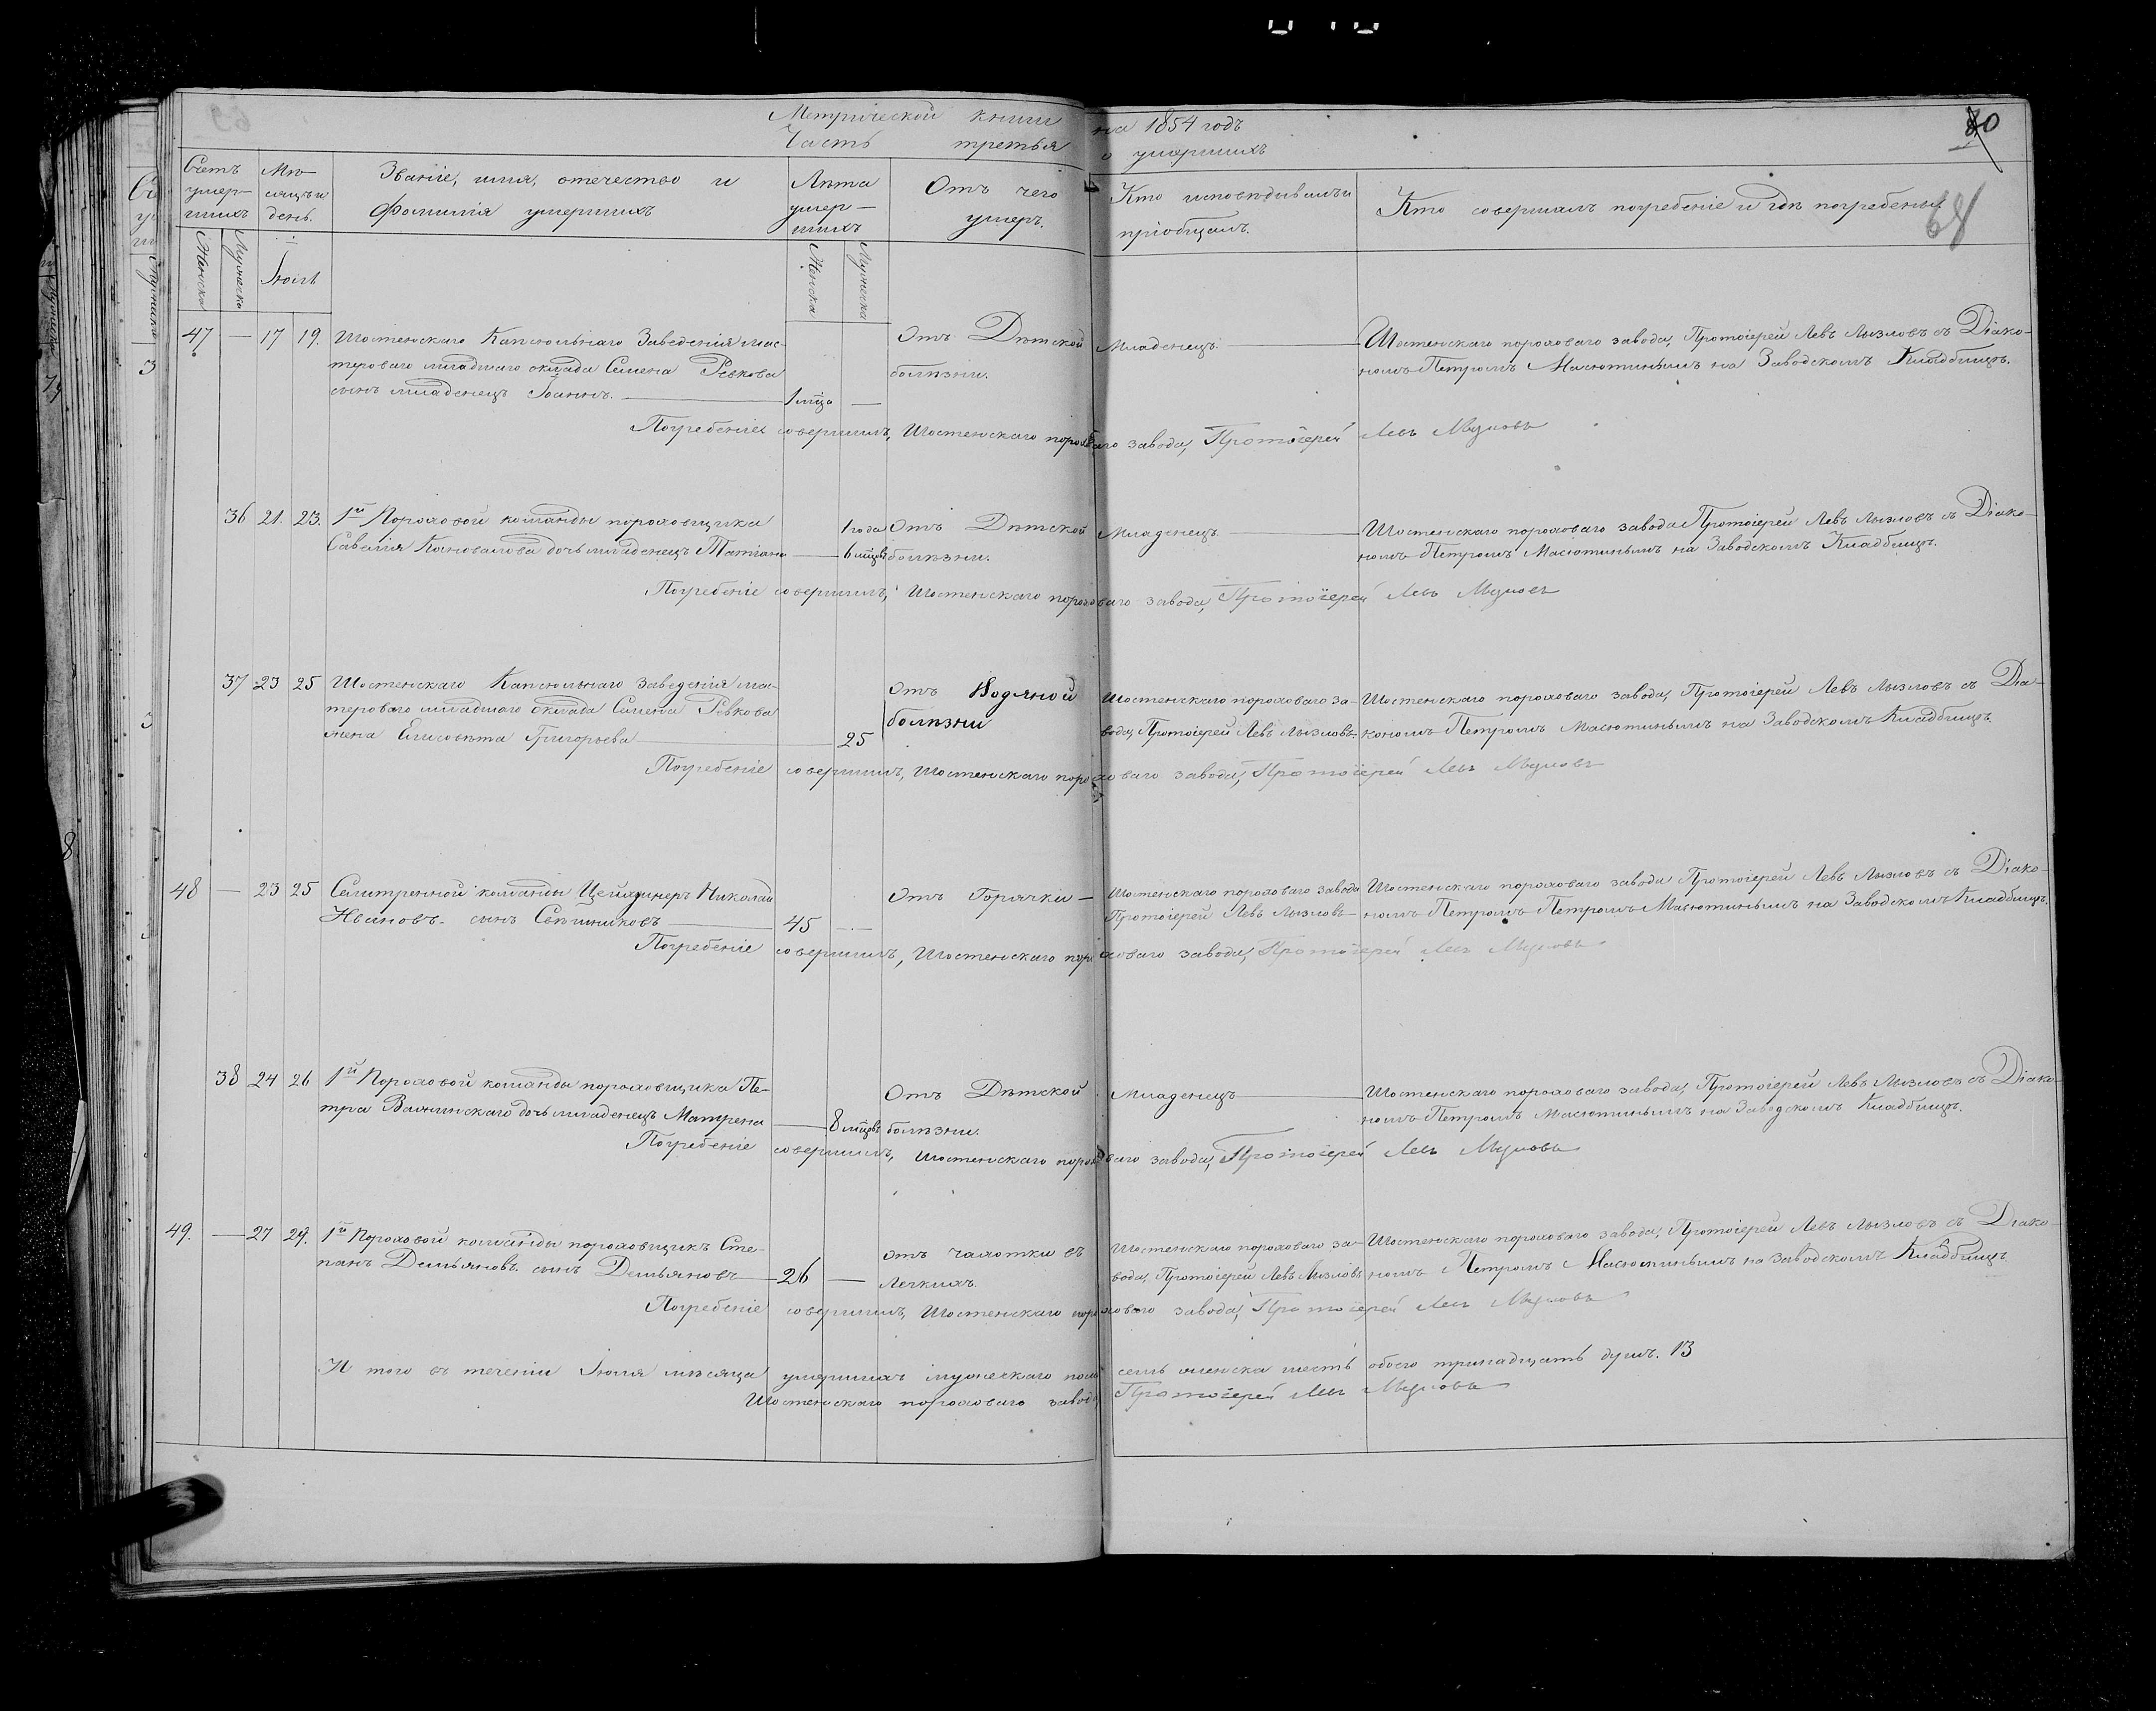 Метрической книги на 1854 годъ
Часть третья о умершихъ
80
68
Счетъ умер-шихъ
Мѣ-сяцъ и день.
Званіе, имя, отечество и фамилія умершихъ
Лѣта умер-шихъ
Отъ чего умеръ.
Кто исповѣдывалъ и пріобщалъ.
Кто совершалъ погребеніе и гдѣ погребены
Женска Мужеска Іюль Женска Мужеска
47 — 17 19. Шостенскаго Капсюльнаго Заведенія мас- Отъ Дѣтской Младенецъ. Шостенскаго пороховаго завода, Протоіерей Левъ Лызловъ съ Діако-
тероваго младшаго оклада Семена Ревкова болѣзни. номъ Петромъ Масютинымъ на Заводскомъ Кладбищѣ.
сынъ младенецъ Іоаннъ. 1 мца —
Погребеніе совершилъ, Шостенскаго пороховаго завода, Протоіерей Левъ Лызловъ
36 21. 23. 1й Пороховой команды пороховщика 1 года Отъ Дѣтской Младенецъ. Шостенскаго пороховаго завода Протоіерей Левъ Лызловъ съ Діако-
Савелія Коновалова дочь младенецъ Татіана — 6 мцвъ болѣзни. номъ Петромъ Масютинымъ на Заводскомъ Кладбищѣ.
Погребеніе совершилъ, Шостенскаго пороховаго завода, Протоіерей Левъ Лызловъ
37 23 25 Шостенскаго Капсюльнаго Заведенія мас- Отъ Водяной Шостенскаго пороховаго за- Шостенскаго пороховаго завода, Протоіерей Левъ Лызловъ съ Діа-
тероваго младшаго оклада Семена Ревкова болѣзни вода, Протоіерей Левъ Лызловъ. кономъ Петромъ Масютинымъ на Заводскомъ Кладбищѣ.
жена Елисавета Григорьева 25
Погребеніе совершилъ, Шостенскаго пороховаго завода, Протоіерей Левъ Лызловъ
48 — 23 25 Селитренной команды Цейхдинеръ Николай Отъ Горячки — Шостенскаго пороховаго завода Шостенскаго пороховаго завода Протоіерей Левъ Лызловъ съ Діако-
Ивановъ сынъ 45 — Протоіерей Левъ Лызловъ — номъ Петромъ Петромъ Масютинымъ на Заводскомъ Кладбищѣ.
Погребеніе совершилъ, Шостенскаго пороховаго завода, Протоіерей Левъ Лызловъ
38 24 26 1й Пороховой команды пороховщика Пе- Отъ Дѣтской Младенецъ Шостенскаго пороховаго завода, Протоіерей Левъ Лызловъ съ Діако-
тра дочь младенецъ Матрена — 8 мцвъ болѣзни. номъ Петромъ Масютинымъ на Заводскомъ Кладбищѣ.
Погребеніе совершилъ, Шостенскаго пороховаго завода, Протоіерей Левъ Лызловъ
49. — 27 29. 1й Пороховой команды пороховщикъ Сте- отъ чахотки въ Шостенскаго пороховаго за- Шостенскаго пороховаго завода, Протоіерей Левъ Лызловъ съ Діако-
панъ Демьяновъ сынъ Демьяновъ — 26 — Легкихъ. вода, Протоіерей Левъ Лызловъ номъ Петромъ Масютинымъ на Заводскомъ Кладбищѣ.
Погребеніе совершилъ, Шостенскаго пороховаго завода, Протоіерей Левъ Лызловъ
И того въ теченіи Іюля мѣсяца умершихъ мужескаго пола семь женска шесть обоего тринадцать душъ. 13
Шостенскаго пороховаго завода Протоіерей Левъ Лызловъ